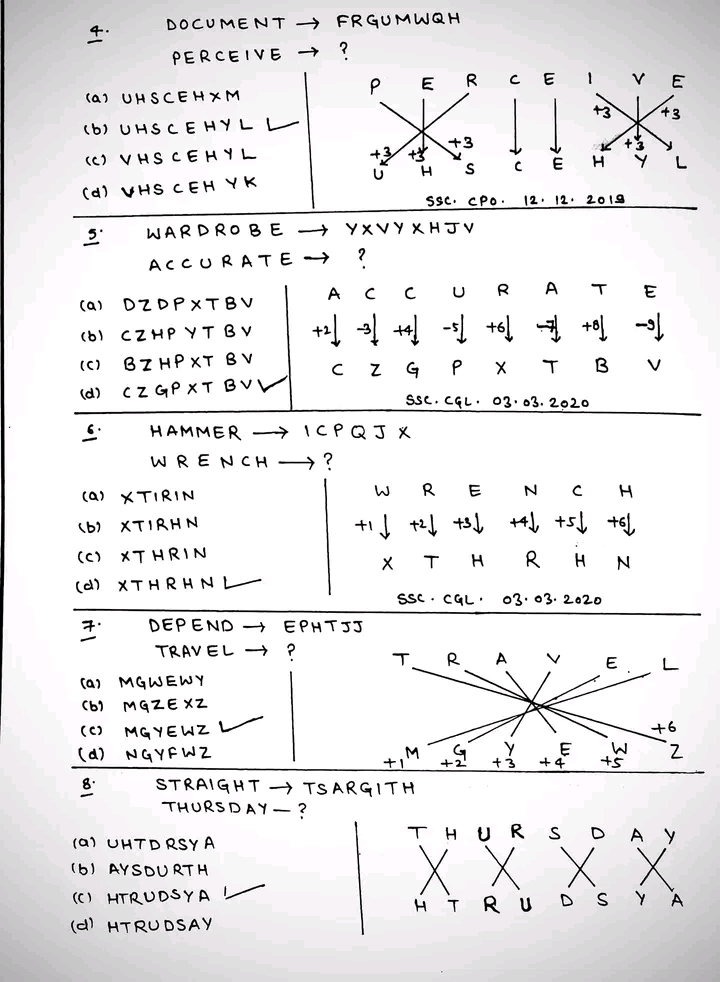 4. DOCUMENT → FRGUMWQH
PERCEIVE → ?
(a) UHSCEHXM
(b) UHSCEHYL
(c) VHSCEHYL
(d) VHSCEHYK
P E R C E I V E
+3 +3
+3 +3 +3 +3
U H S C E H Y L
SSC. CPO. 12.12.2019
5. WARDROBE → YXVYXHJV
ACCURATE → ?
(a) DZDPXTBV
(b) CZHPYTBV
(c) BZHPXTBV
(d) CZGPXTBV
A C C U R A T E
+2 -3 +4 -5 +6 -7 +8 -9
C Z G P X T B V
SSC. CGL. 03.03.2020
6. HAMMER → ICPQJX
WRENCH → ?
(a) XTIRIN
(b) XTIRHN
(c) XTHRIN
(d) XTHRHN
W R E N C H
+1 +2 +3 +4 +5 +6
X T H R H N
SSC. CGL. 03.03.2020
7. DEPEND → EPHTJJ
TRAVEL → ?
(a) MGWEWY
(b) MGZEXZ
(c) MGYEWZ
(d) NGYFWZ
T R A V E L
M G Y E W Z
+1 +2 +3 +4 +5 +6
8. STRAIGHT → TSARGITH
THURSDAY – ?
(a) UHTDRSYA
(b) AYSDURTH
(c) HTRUDSYA
(d) HTRUDSAY
T H U R S D A Y
H T R U D S Y A